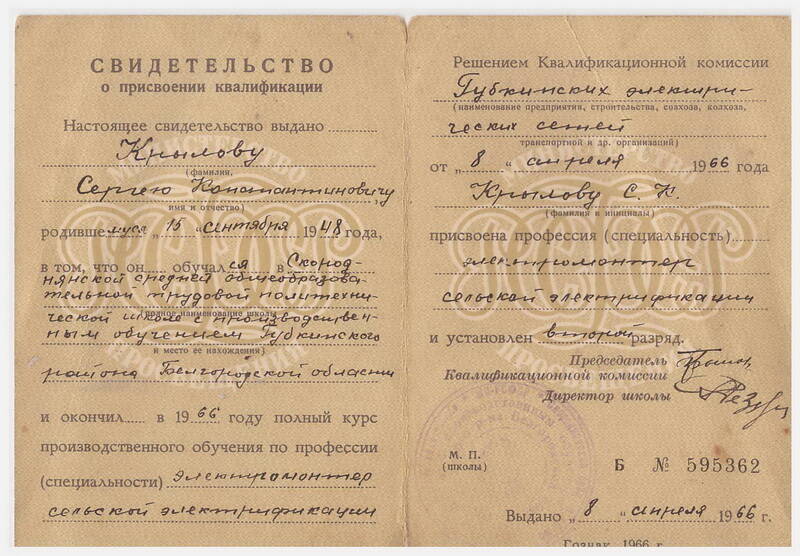 СВИДЕТЕЛЬСТВО
о присвоении квалификации
Настоящее свидетельство выдано
Крылову
(фамилия,
Сергею Константиновичу
имя и отчество)
родившемуся „ 15 „ сентября 1948 года,
в том, что он обучался в Скород-
нянской средней общеобразова-
тельной трудовой политехни-
ческой школе с производствен-
(полное наименование школы
ным обучением Губкинского
и место ее нахождения)
района Белгородской области
и окончил в 1966 году полный курс
производственного обучения по профессии
(специальности) электромонтер
сельской электрификации
Решением Квалификационной комиссии
Губкинских электри-
(наименование предприятия, строительства, совхоза, колхоза,
ческих сетей
транспортной и др. организаций)
от „ 8 „ апреля 1966 года
Крылову С. К.
(фамилия и инициалы)
присвоена профессия (специальность)
электромонтер
сельской электрификации
и установлен второй разряд.
Председатель
Квалификационной комиссии
Директор школы
М. П.
(школы)
Б № 595362
Выдано „ 8 „ апреля 1966 г.
Гознак. 1966 г.